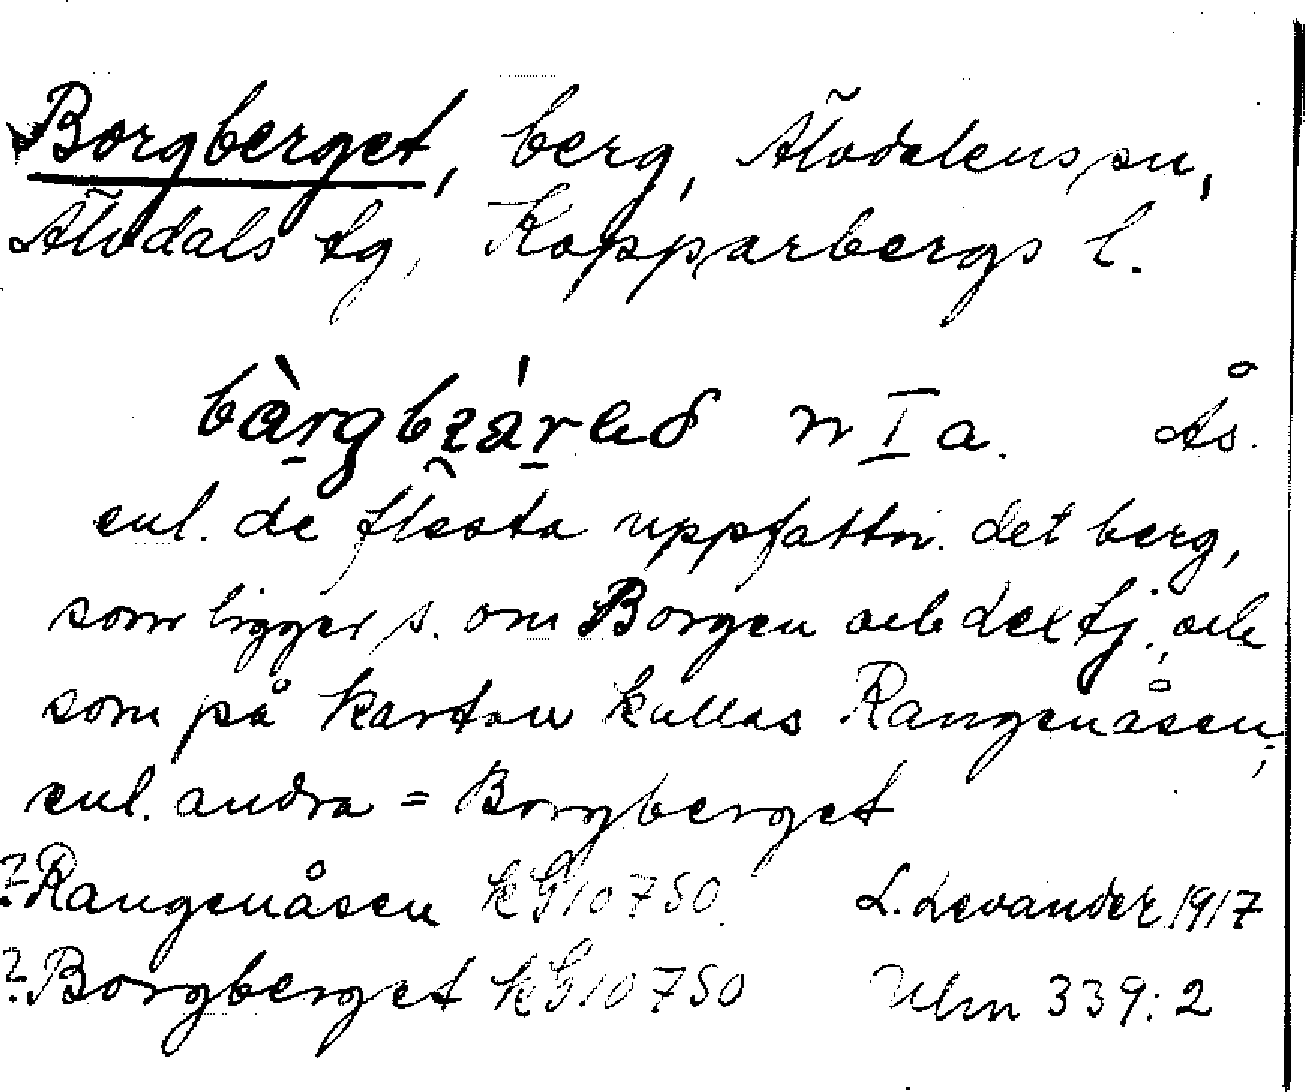 Borgberget, berg, Älvdalens sn,
Älvdals tg, Kopparbergs l.
n I a. Ås.
enl. de flesta uppfattn. det berg,
som ligger s. om Borgen och dex tj., och
som på kartan kallas Rangenåsen;
enl. andra = Borgberget
? Rangenåsen kG 10750. L. Levander 1917
? Borgberget kG 10750 Ulm 339:2